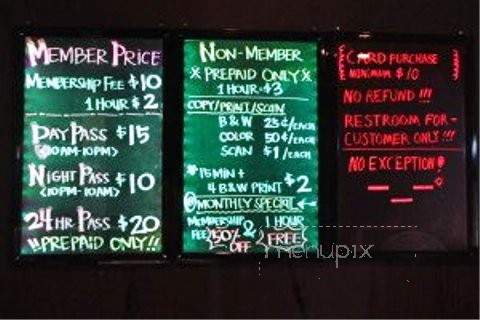 MEMBER PRICE
MEMBERSHIP FEE $10
1 HOUR $2
DAY PASS $15
<10AM-10PM>
NIGHT PASS $10
<10PM-10AM>
24HR PASS $20
!!PREPAID ONLY!!
NON-MEMBER
PREPAID ONLY
1 HOUR $3
COPY/PRINT/SCAN
B&W 25¢/EACH
COLOR 50¢/EACH
SCAN $1/EACH
*15 MIN +
4 B&W PRINT $2
MONTHLY SPECIAL
MEMBERSHIP FEE 50% OFF & 1 HOUR FREE
CARD PURCHASE
MINIMUM $10
NO REFUND!!!
RESTROOM FOR-
CUSTOMER ONLY!!!
NO EXCEPTION!
menupix